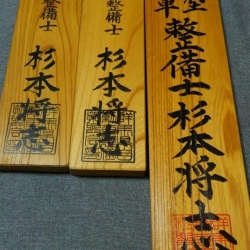 整備士
杉本将志
整備士
杉本将志
車整備士杉本将志